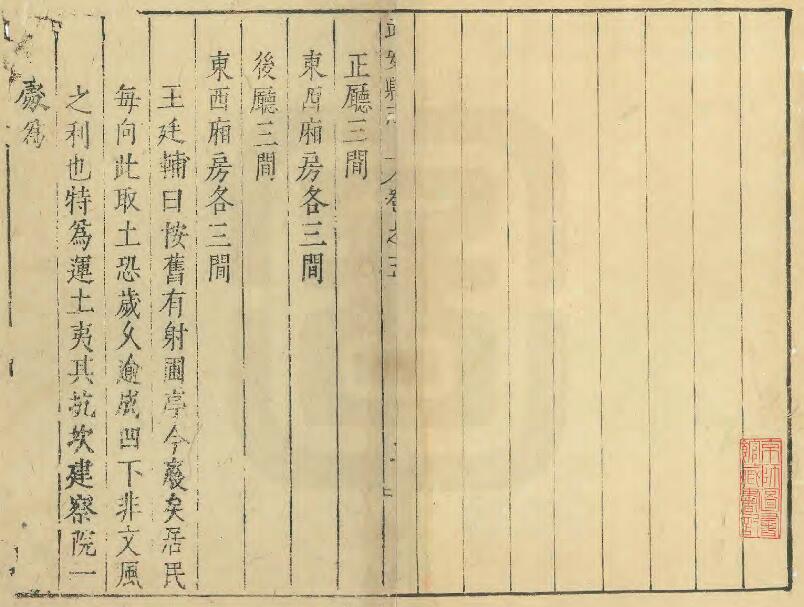 正廳三間
東西廂房各三間
後廳三間
東西廂房各三間
王廷輔曰按舊有射圃亭今廢矣居民
每向此取土恐歲久逾成凹下非文風
之利也特爲運土夷其坑坎建察院一
爲